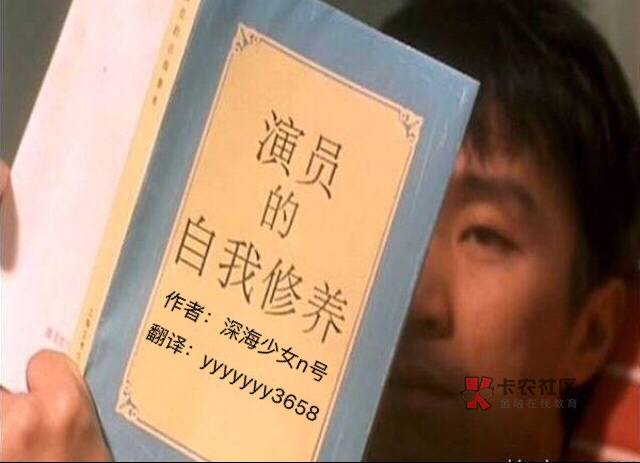 演员
的
自我修养
作者：深海少女n号
翻译：yyyyyyy3658
卡农社区
金融在线教育